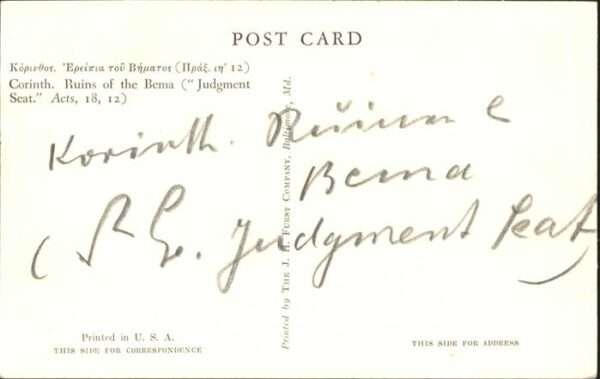 POST CARD
Κόρινθος. Ἐρείπια τοῦ Βήματος (Πράξ. ιη' 12)
Corinth. Ruins of the Bema ("Judgment
Seat." Acts, 18, 12)
Korinth.
Bema
Judgment Seat)
Printed by THE J. H. FURST COMPANY, Baltimore, Md.
Printed in U. S. A.
THIS SIDE FOR CORRESPONDENCE
THIS SIDE FOR ADDRESS